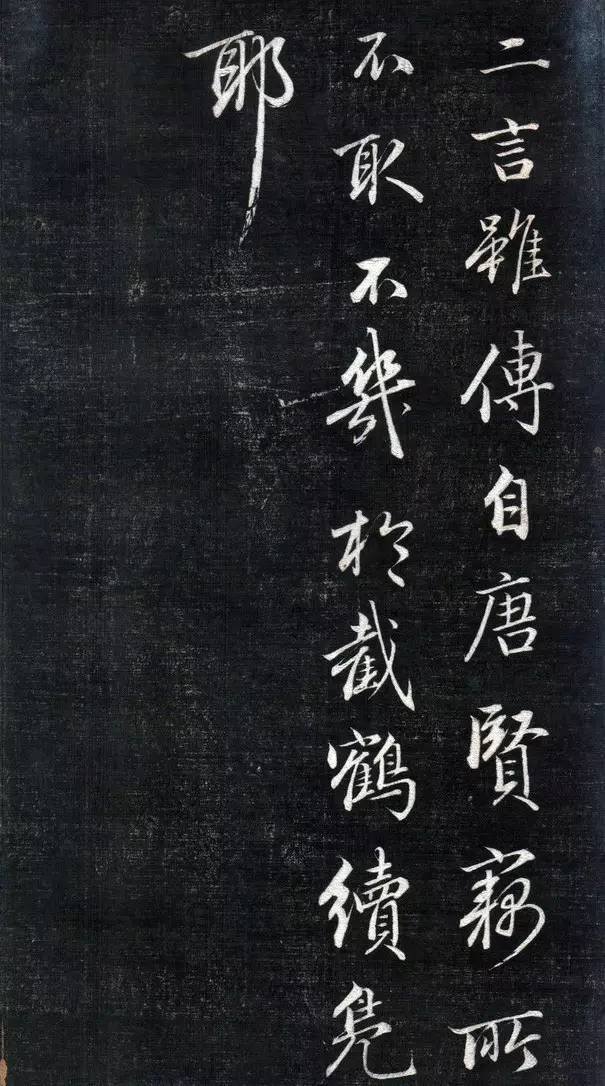 二言雖傳自唐賢竊所
不取不幾於截鶴續鳧
耶